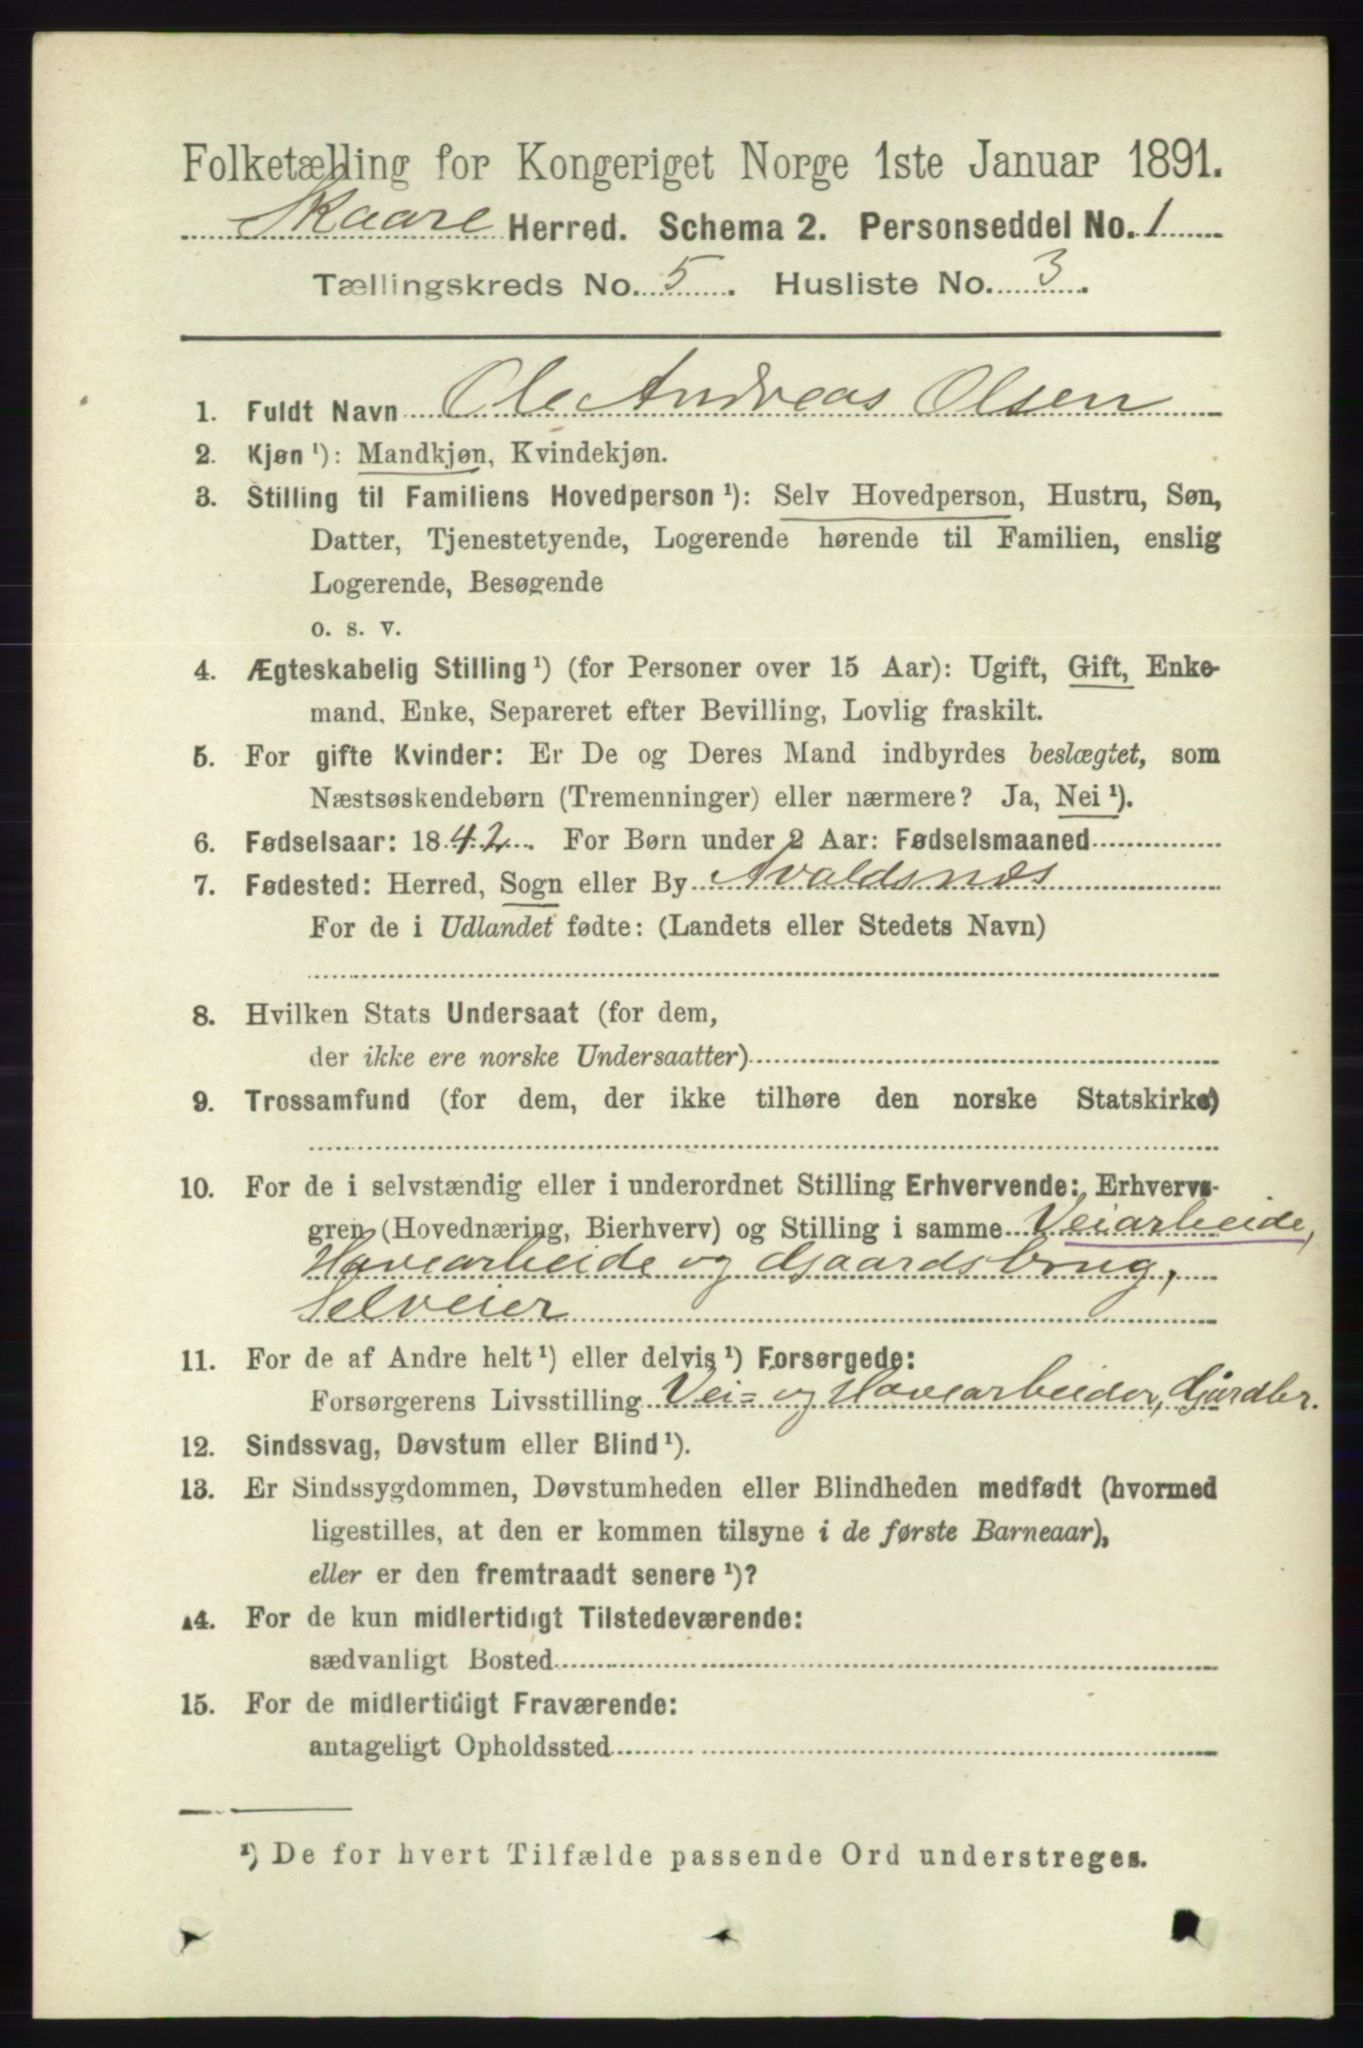 Folketælling for Kongeriget Norge 1ste Januar 1891.
Skaare Herred. Schema 2. Personseddel No. 1
Tællingskreds No. 5. Husliste No. 3.
1. Fuldt Navn Ole Andreas Olsen
2. Kjøn ¹): Mandkjøn, Kvindekjøn.
3. Stilling til Familiens Hovedperson ¹): Selv Hovedperson, Hustru, Søn,
Datter, Tjenestetyende, Logerende hørende til Familien, enslig
Logerende, Besøgende
o. s. v.
4. Ægteskabelig Stilling ¹) (for Personer over 15 Aar): Ugift, Gift, Enke-
mand, Enke, Separeret efter Bevilling, Lovlig fraskilt.
5. For gifte Kvinder: Er De og Deres Mand indbyrdes beslægtet, som
Næstsøskendebørn (Tremenninger) eller nærmere? Ja, Nei ¹).
6. Fødselsaar: 1842. For Børn under 2 Aar: Fødselsmaaned
7. Fødested: Herred, Sogn eller By Avaldsnæs
For de i Udlandet fødte: (Landets eller Stedets Navn)
8. Hvilken Stats Undersaat (for dem,
der ikke ere norske Undersaatter)
9. Trossamfund (for dem, der ikke tilhøre den norske Statskirke)
10. For de i selvstændig eller i underordnet Stilling Erhvervende: Erhvervs-
gren (Hovednæring, Bierhverv) og Stilling i samme Veiarbeide,
Havearbeide og Gaardsbrug,
Selveier
11. For de af Andre helt ¹) eller delvis ¹) Forsørgede:
Forsørgerens Livsstilling Vei= og Havearbeider, Gårdbr.
12. Sindssvag, Døvstum eller Blind ¹).
13. Er Sindssygdommen, Døvstumheden eller Blindheden medfødt (hvormed
ligestilles, at den er kommen tilsyne i de første Barneaar),
eller er den fremtraadt senere ¹)?
14. For de kun midlertidigt Tilstedeværende:
sædvanligt Bosted
15. For de midlertidigt Fraværende:
antageligt Opholdssted
¹) De for hvert Tilfælde passende Ord understreges.